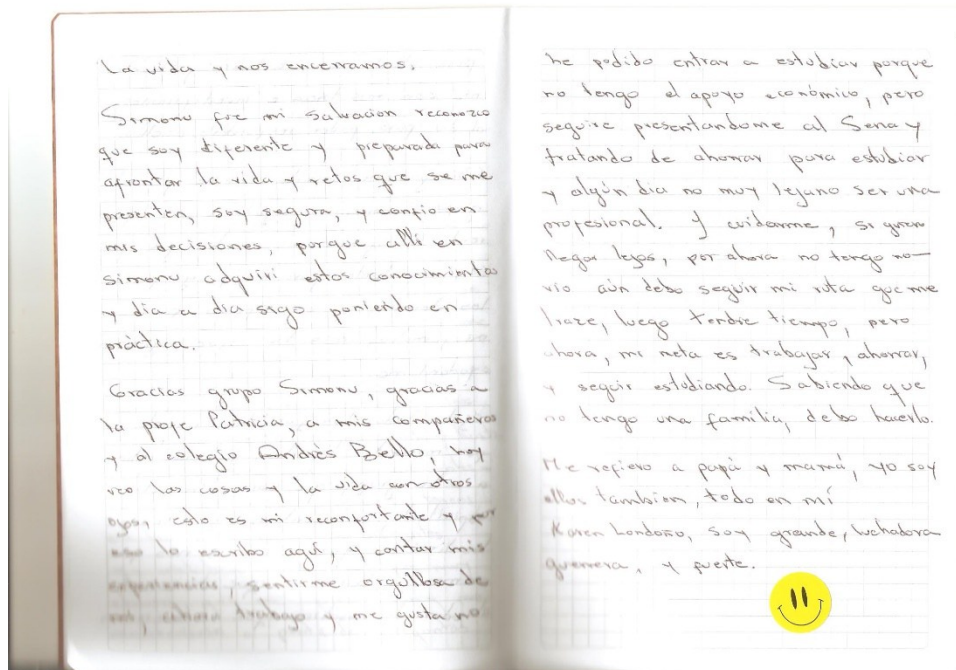 la vida y nos encerramos.
Simonu fue mi salvacion reconozco
que soy diferente y preparada para
afrontar la vida y retos que se me
presenten, soy segura, y confio en
mis decisiones, porque alli en
simonu adquiri estos conocimientos
y dia a dia sigo poniendo en
práctica.
Gracias grupo Simonu, gracias a
la profe Patricia, a mis compañeros
y al colegio Andrés Bello, hoy
veo las cosas y la vida con otros
ojos, esto es mi reconfortante y por
eso lo escribo aquí, y contar mis
experiencias, sentirme orgullosa de
mi, ahora trabajo y me gusta no
he podido entrar a estudiar porque
no tengo el apoyo económico, pero
seguire presentandome al Sena y
tratando de ahorrar para estudiar
y algún dia no muy lejano ser una
profesional. Y cuidarme, si quiero
llegar lejos, por ahora no tengo no-
vio aún debo seguir mi ruta que me
traze, luego tendre tiempo, pero
ahora, mi meta es trabajar, ahorrar,
y seguir estudiando. Sabiendo que
no tengo una familia, debo hacerlo.
Me refiero a papá y mamá, yo soy
ellos tambien, todo en mí
Karen Londoño, soy grande, luchadora
guerrera, y fuerte.